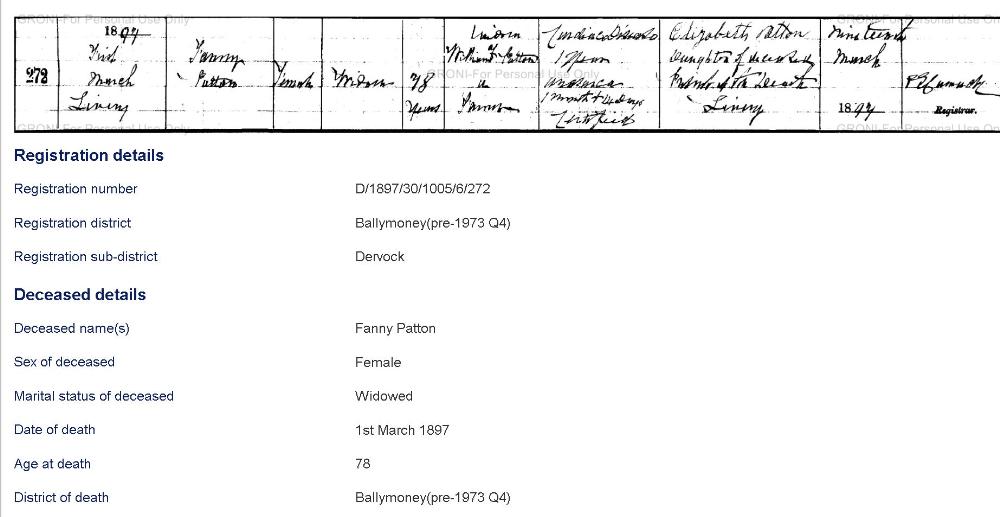 GRONI-For Personal Use Only
1897
First March Livery
272
Fanny Patton
Female
Widow
78 Years
Widow William Patton a Farmer
Cardiac Disease
1 Year
Anasarca
1 month
Certified
Elizabeth Patton
Daughter of deceased
Present at the Death
Livery
Nineteenth
March
1897
Registrar.
Registration details
Registration number D/1897/30/1005/6/272
Registration district Ballymoney(pre-1973 Q4)
Registration sub-district Dervock
Deceased details
Deceased name(s) Fanny Patton
Sex of deceased Female
Marital status of deceased Widowed
Date of death 1st March 1897
Age at death 78
District of death Ballymoney(pre-1973 Q4)